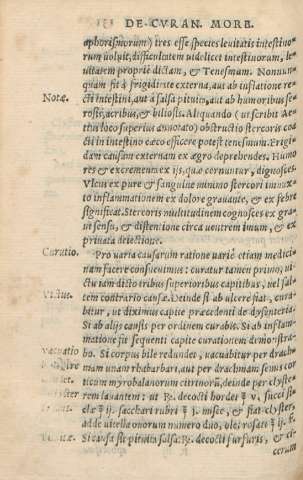 DE CVRAN. MORB.
aphorismorum) tres esse species leuitatis intestino-
rum uoluit, difficultatem uidelicet intestinorum, le-
uitatem proprie dictam, & Tenesmum. Nonnun-
quam fit à frigiditate externa, aut ab inflatione re-
Notæ. cti intestini, aut à salsa pituita, aut ab humoribus se-
rosis, acribus, & biliosis. Aliquando (ut scribit Ae-
tius loco superius annotato) obstructio stercoris coa-
cti in intestino cæco efficere potest tenesmum. Frigi-
dam causam externam ex ægro deprehendes. Humo
res & excrementum ex ijs, quæ cernuntur, dignosces.
Vlcus ex pure & sanguine minimo stercori inmix-
to inflammationem ex dolore grauante, & ex febre
significat. Stercoris multitudinem cognosces ex gra-
ui sensu, & distentione circa uentrem imum, & ex
priuata deiectione.
Curatio. Pro uaria causarum ratione uariè etiam medici-
nam facere consueuimus: curatur tamen primò, ui-
ctu iam dicto tribus superioribus capitibus, uel sal-
Victus. tem contrario causæ. Deinde si ab ulcere fiat, cura-
bitur, ut diximus capite præcedenti de dysenteria.
Si ab alijs causis per ordinem curabis. Si ab inflam-
matione fit sequenti capite curationem demonstra-
bo. Si corpus bile redundet, uacuabitur per drach-
mam unam rhabarbari, aut per drachmam semis cor
ticum myrobalanorum citrinorū, deinde per clyste-
rem lauantem: ut ℞. decocti hordei ℥ v. succi
ij. sacchari rubri ℥ j. misce, & fiat clyster,
adde uitellā onorum numero duo, olei rosati ℥ ij.
Si causa sit pituita salsa: ℞. decocti furfuris, & ci-
cerum